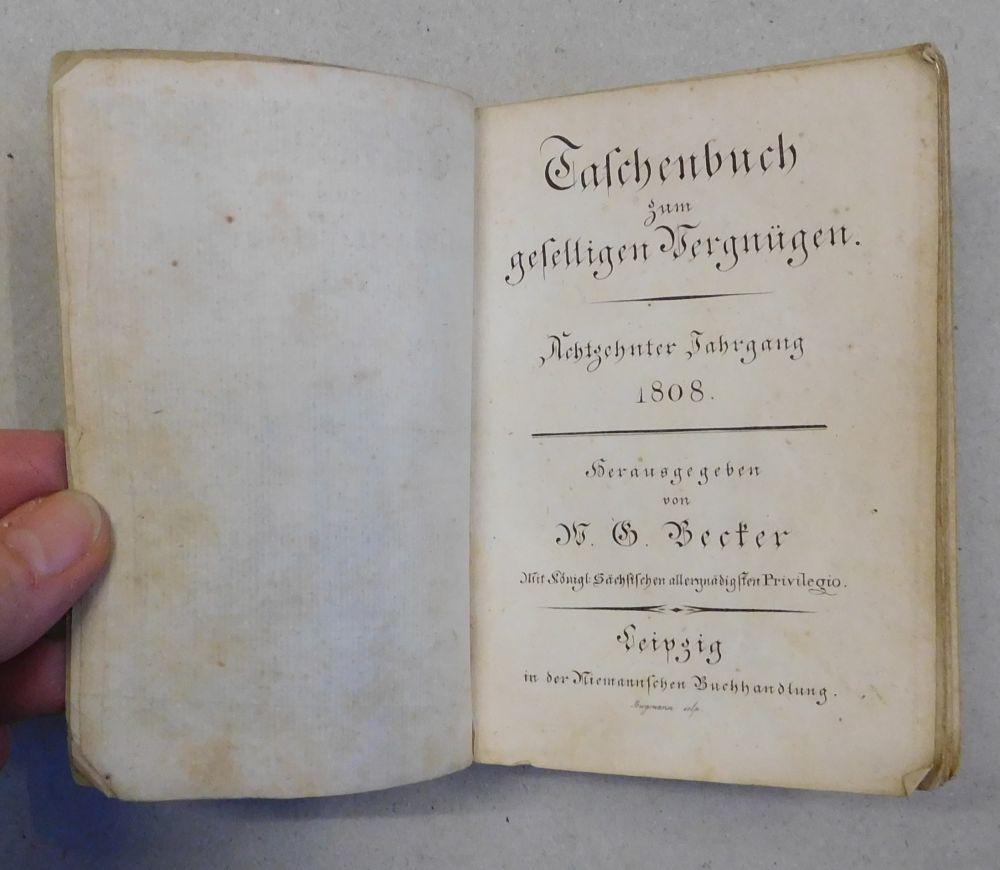 Taſchenbuch
zum
geſelligen Vergnügen.
Achtzehnter Jahrgang
1808.
Herausgegeben
von
W. G. Becker
Mit Königl: Sächſiſchen allergnädigſten Privilegio.
Leipzig
in der Niemannſchen Buchhandlung.
sculp.